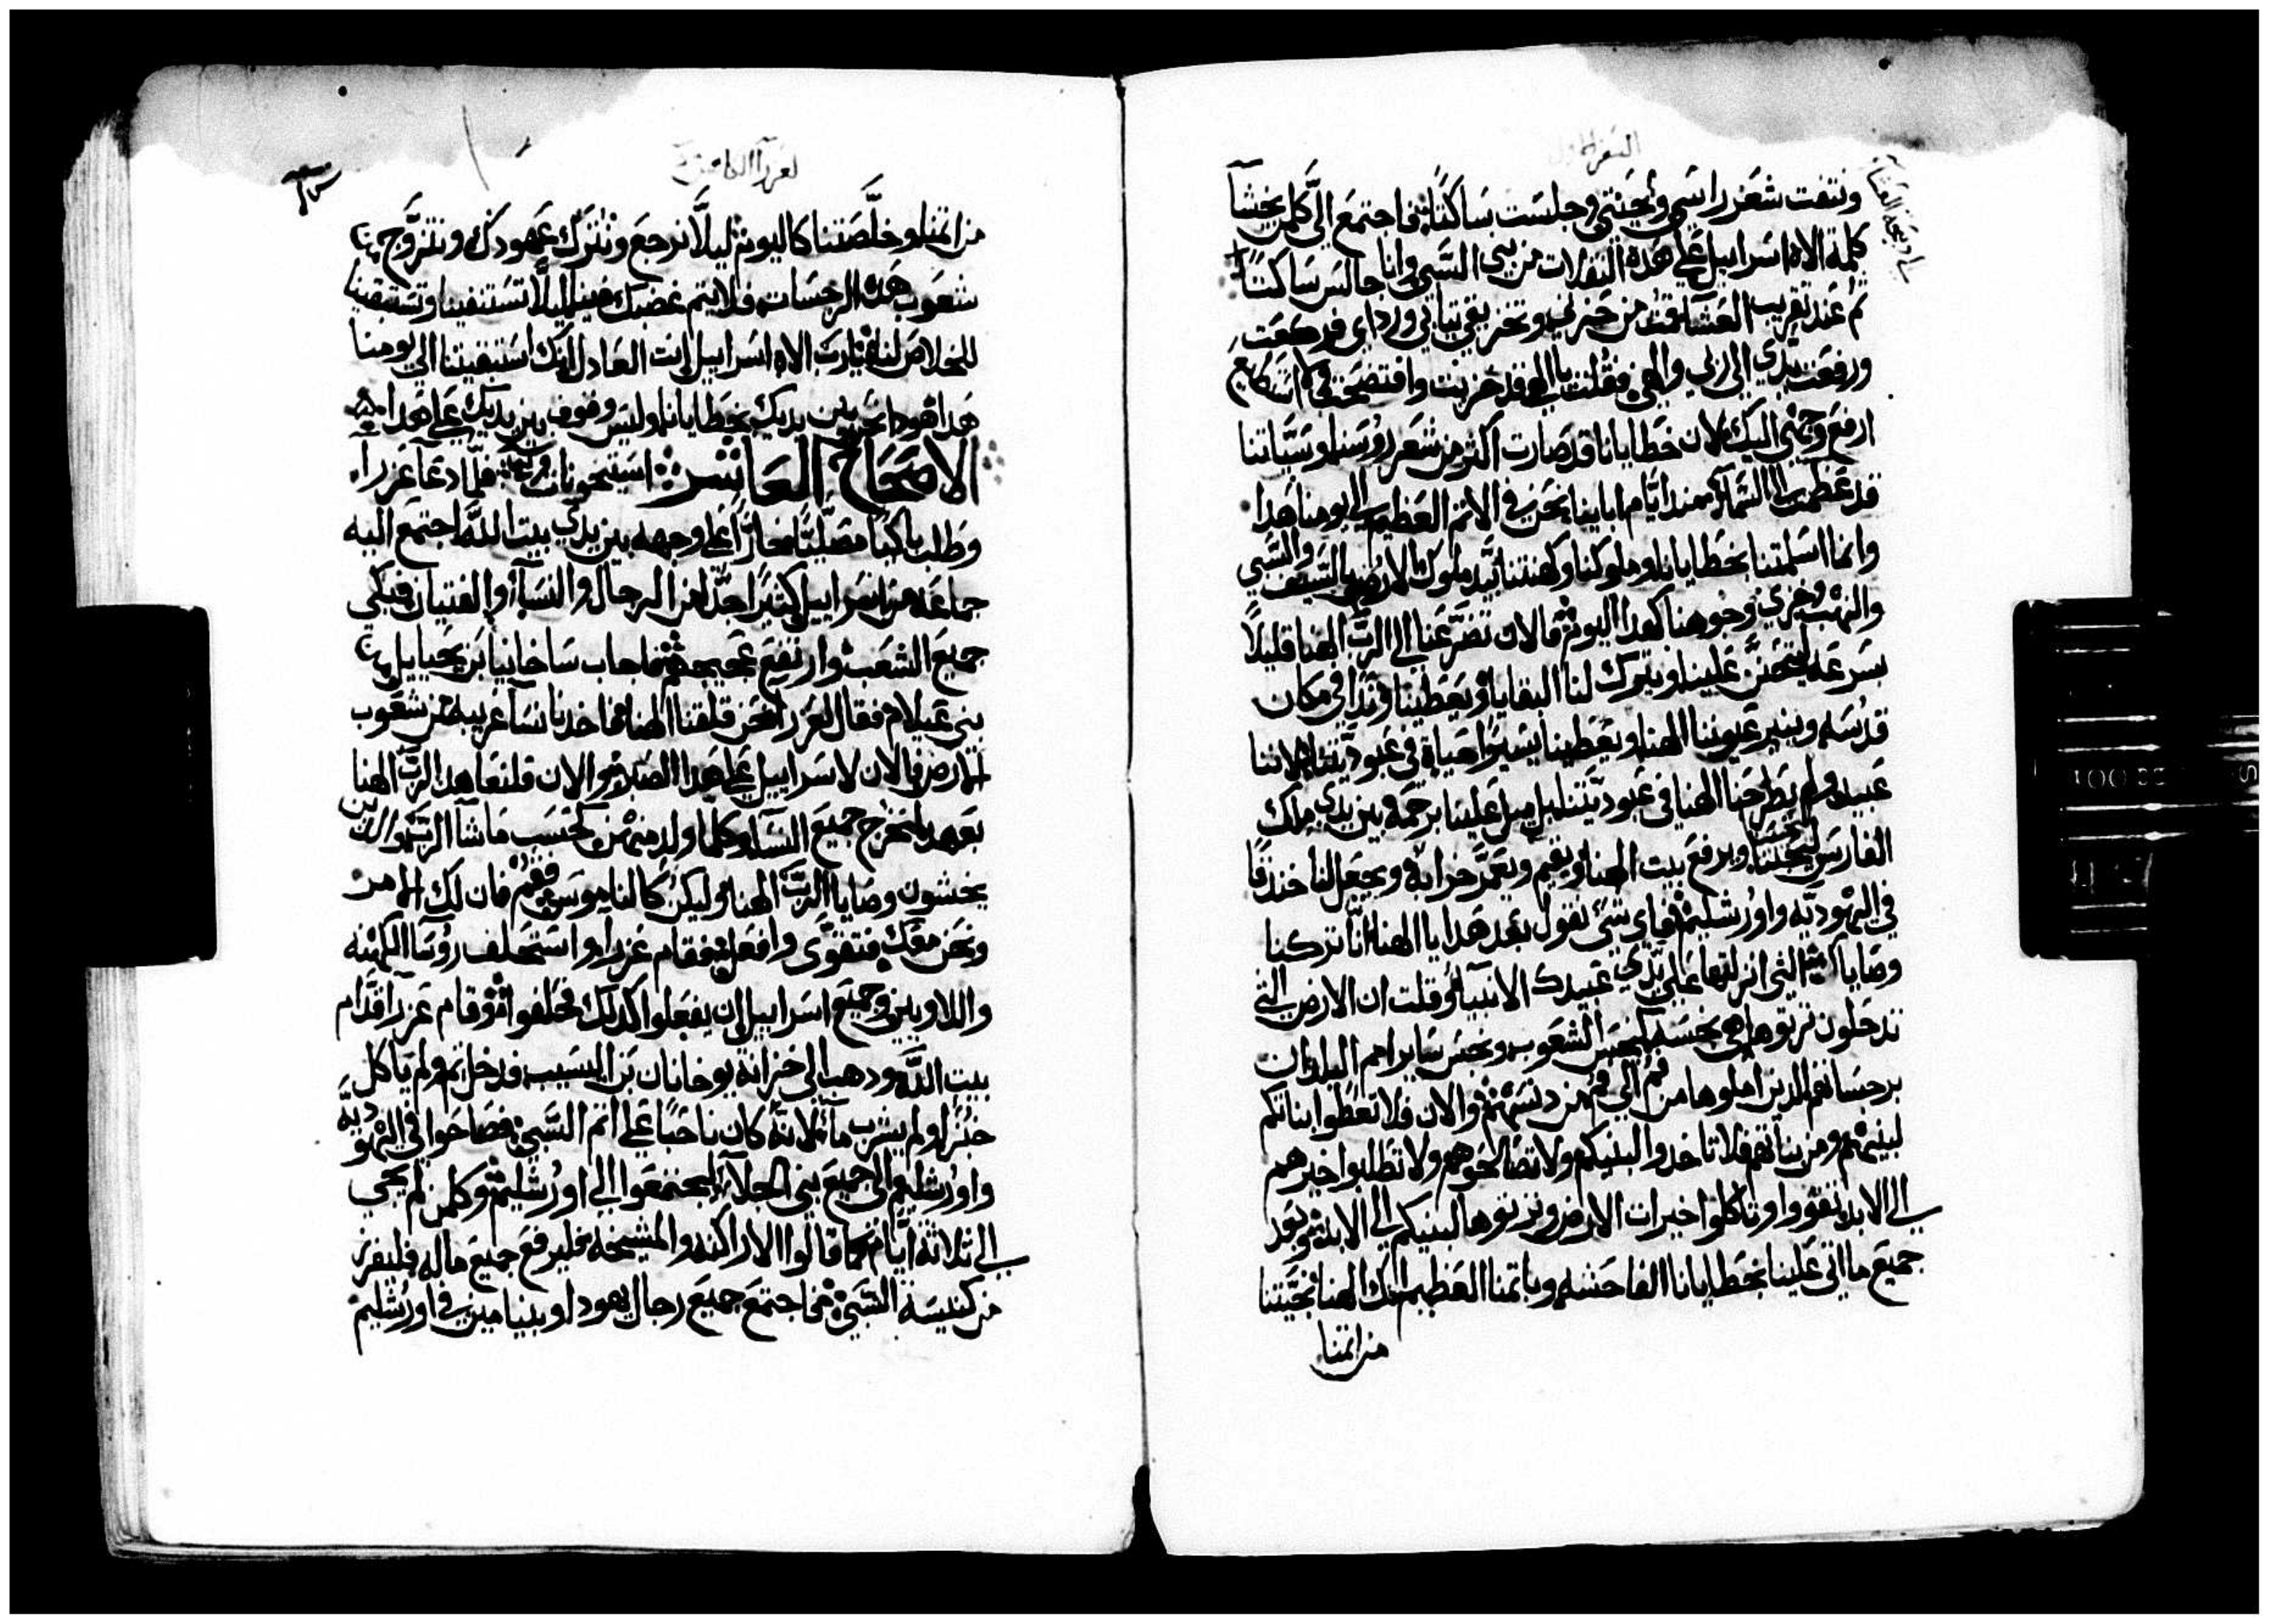 السفر الاول
ونتفت شعر راسي ولحيتي وجلست ساكتًا فاجتمع الى كلمن يخشا
كلمة الاه اسراييل على هذه النقلات من بني السبي وانا جالس ساكتًا
الى ذبيحة العشا
ثم عند تقريب العشا قمت من حزني وتخزيقي ثيابي ورداي فركعت
ورفعت يدي الى ربي والهي فقلت يا الهي قد خزيت وافتضحت فلا استطيع
ارفع وجهي اليك لان خطايانا قد صارت اكثر من شعر روسنا وسيّاتنا
قد عظمت الى السما منذ ايام اباينا نحن في الاثم العظيم الى يومنا هذا
وانما اسلمتنا بخطايانا وملوكنا وكهنتنا بيد ملوك الارض بالسيف والسبي
والنهب وخزي وجوهنا كهذا اليوم فالان تضرعنا الى الرب الهنا قليلًا
بسرعه ليتحنن علينا ويترك لنا البقايا ويعطينا وتدًا في مكان
قدسه وينير عيوننا الهنا ويعطينا يسيرا حياة في عبوديتنا لاننا
عبيد ولم يطرحنا الهنا في عبوديتنا بل ميل علينا برحمة بين يدي ملك
الفارس ليحيينا ويرفع بيت الهنا ويقيم ويعمر خرابه ويجعل لنا خندقًا
في اليهوديه واورشليم فاي شي نقول بعد هذا يا الهنا انّا تركنا
وصاياك التي انزلتها على يدي عبيدك الانبيا وقلت ان الارض التي
تدخلون ترثوها هي نجسه كنجس الشعوب ونجس ساير امم البلدان
برجساتهم الذين املوها من فم الى فم من دنسهم والان فلا تعطوا بناتكم
لبنيهم ومن بناتهم فلا تاخدوا لبنيكم ولا تصالحوهم ولا تطلبوا خيرهم
الى الابد تقووا وتاكلوا خيرات الارض وترثوها لبنيكم الى الابد وبعد
جميع ما اتى علينا بخطايانا الفاحشه وباثمنا العظيم انك الهنا نجيتنا
من اثمنا
لعزرا الكاهن
من اثمنا وخلّصتنا كاليوم ليلّا نرجع ونترك عهودك ونتزوّج
شعوب هذه الرجسات فلا يتم غضبك فينا ليلّا تستنفينا وتستبقينا
للخلاص لنا يا رب الاه اسراييل انت العادل انك استبقيتنا الى يومنا
هذا هوذا نحن بين يديك بخطايانا وليس وقوف بين يديك على هذا
الاصحاح العاشر فلمّا دعا عزرا
وطلب باكيًا مصلّيًا على وجهه بين يدي بيت الله اجتمع اليه
جماعه من اسراييل كثيرًا جدًا من الرجال والنسا والفتيان فبكى
جميع الشعب وارتفع عجيجهم فاجاب ساخانيا بن يحياييل من
بني عيلام فقال لعزرا نحن قلقنا الهنا فاخدنا نسا غريبه من شعوب
الارض فالان لاسراييل على هذا الصلاة والان فلنعاهد الرب الهنا
بعهد لنخرج جميع النسا وكلما ولد منهن كحسب ما شا الرب والذين
يخشون وصايا الرب الهنا وليكن كالناموس فقم فان لك الامر
ونحن معك فتقوى وافعل فقام عزرا واستحلف روسا الكهنه
واللاويين وجميع اسراييل ان يفعلوا كذلك فحلفوا وقام عزرا قدّام
بيت الله وذهب الى خزانة يوحانان بن اليسيب فدخل ثم ولم ياكل
خبزا ولم يشرب ما لانه كان ناحبًا على اثم السبي فصاحوا في اليهوديه
واورشليم الى جميع بني الجلا ليجتمعوا الى اورشليم وكلمن لم يجي
الى ثلاثة ايّام كما قالوا الاراكنه والمشيخه فليرفع جميع ماله فليفرز
من كنيسة السبي فاجتمع جميع رجال يهودا وبنيامين في اورشليم